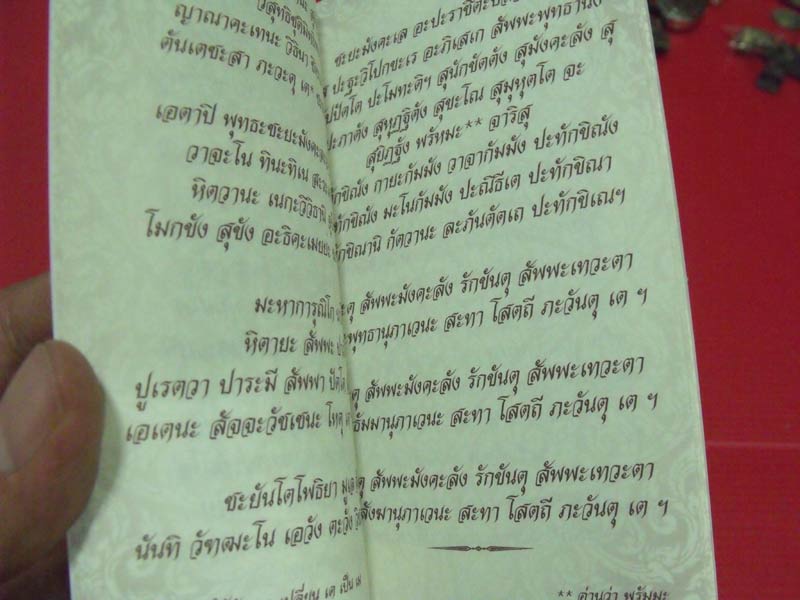 วิสุทธิ
ญาณาคะเทนะ วิธินา
ตันเตชะสา ภะวะตุ เต*
เอตาปิ พุทธะชะยะมังคะ
วาจะโน ทินะทิเน
หิตวานะ เนกะวิวิธานิ
โมกขัง สุขัง อะธิคะเมยยะ
มะหาการุณิโก
หิตายะ สัพพะ
ปูเรตวา ปาระมี สัพพา ปัตโต
เอเตนะ สัจจะวัชเชนะ โหตุ
ชะยันโตโพธิยา
นันทิ วัฑฒะโน เอวัง ตะวัง
เปลี่ยน เต เป็น เม
ชะยะมังคะเล อะปะราชิตะ
ปะฐะวิโปกขะเร อะภิเสเก สัพพะพุทธานัง
ปัตโต ปะโมทะติฯ สุนักขัตตัง สุมังคะลัง สุ
ปะภาตัง สุหุฏฐิตัง สุขะโณ สุมุหุตโต จะ
สุยิฏฐัง พรัหมะ** จาริสุ
ทักขิณัง กายะกัมมัง วาจากัมมัง ปะทักขิณัง
ทักขิณัง มะโนกัมมัง ปะณิธีเต ปะทักขิณา
ทักขิณานิ กัตวานะ ละภันตัตเถ ปะทักขิเณฯ
ตุ สัพพะมังคะลัง รักขันตุ สัพพะเทวะตา
พุทธานุภาเวนะ สะทา โสตถี ภะวันตุ เต ฯ
ตุ สัพพะมังคะลัง รักขันตุ สัพพะเทวะตา
ธัมมานุภาเวนะ สะทา โสตถี ภะวันตุ เต ฯ
ตุ สัพพะมังคะลัง รักขันตุ สัพพะเทวะตา
สังฆานุภาเวนะ สะทา โสตถี ภะวันตุ เต ฯ
** อ่านว่า พรัมมะ